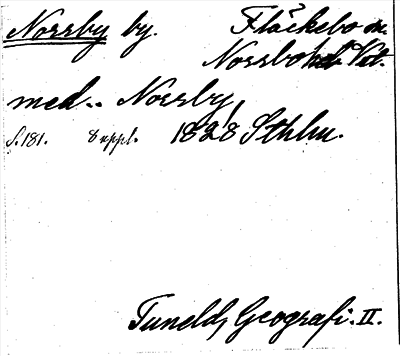 Norrby by. Fläckebo sn.
Norrbo hd Vstm.
med.. Norrby,
S. 181. 8 uppl. 1828 Sthlm.
Tuneld, Geografi. II.